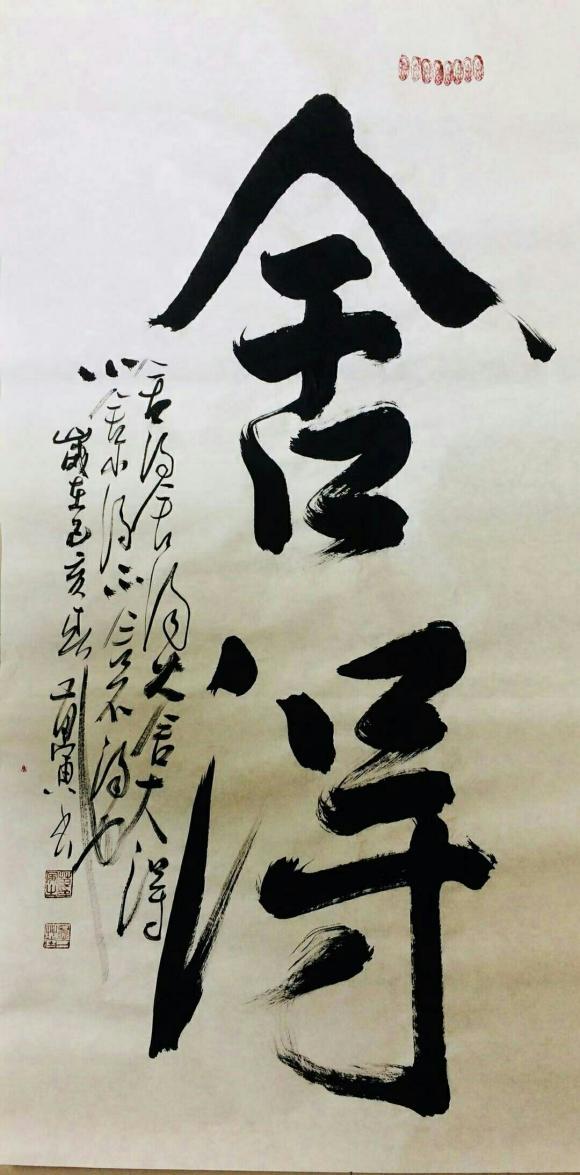 舍得
舍得舍得大舍大得
小舍小得不舍不得也
岁在己亥春
寅书